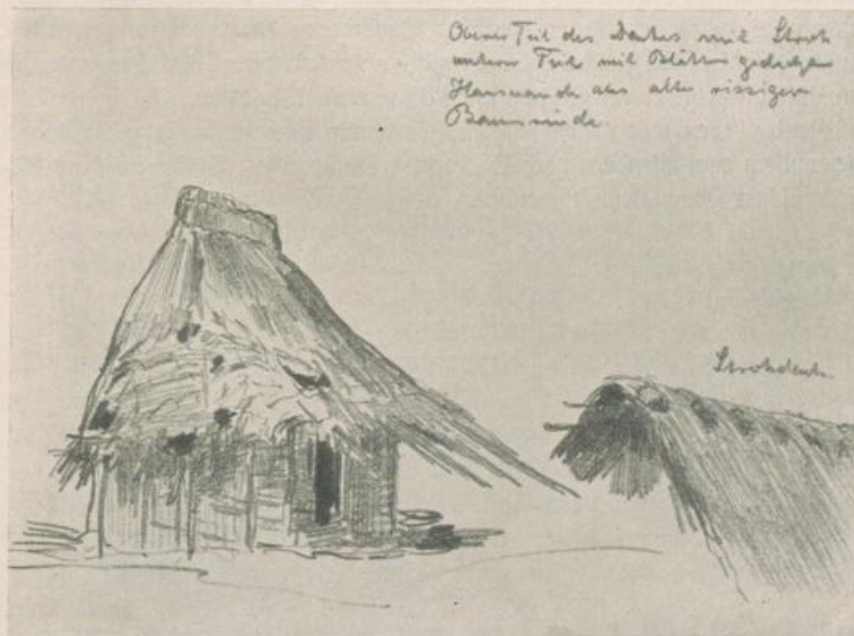 Oberer Teil des Daches mit Stroh
unterer Teil mit Blätter gedeckt
Hauswände aus alter rissiger
Baumrinde.
Strohdach